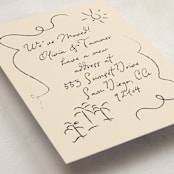 We've Moved!
Olivia & Tanner
have a new
address at
553 Sunset Drive
San Diego, CA
92104